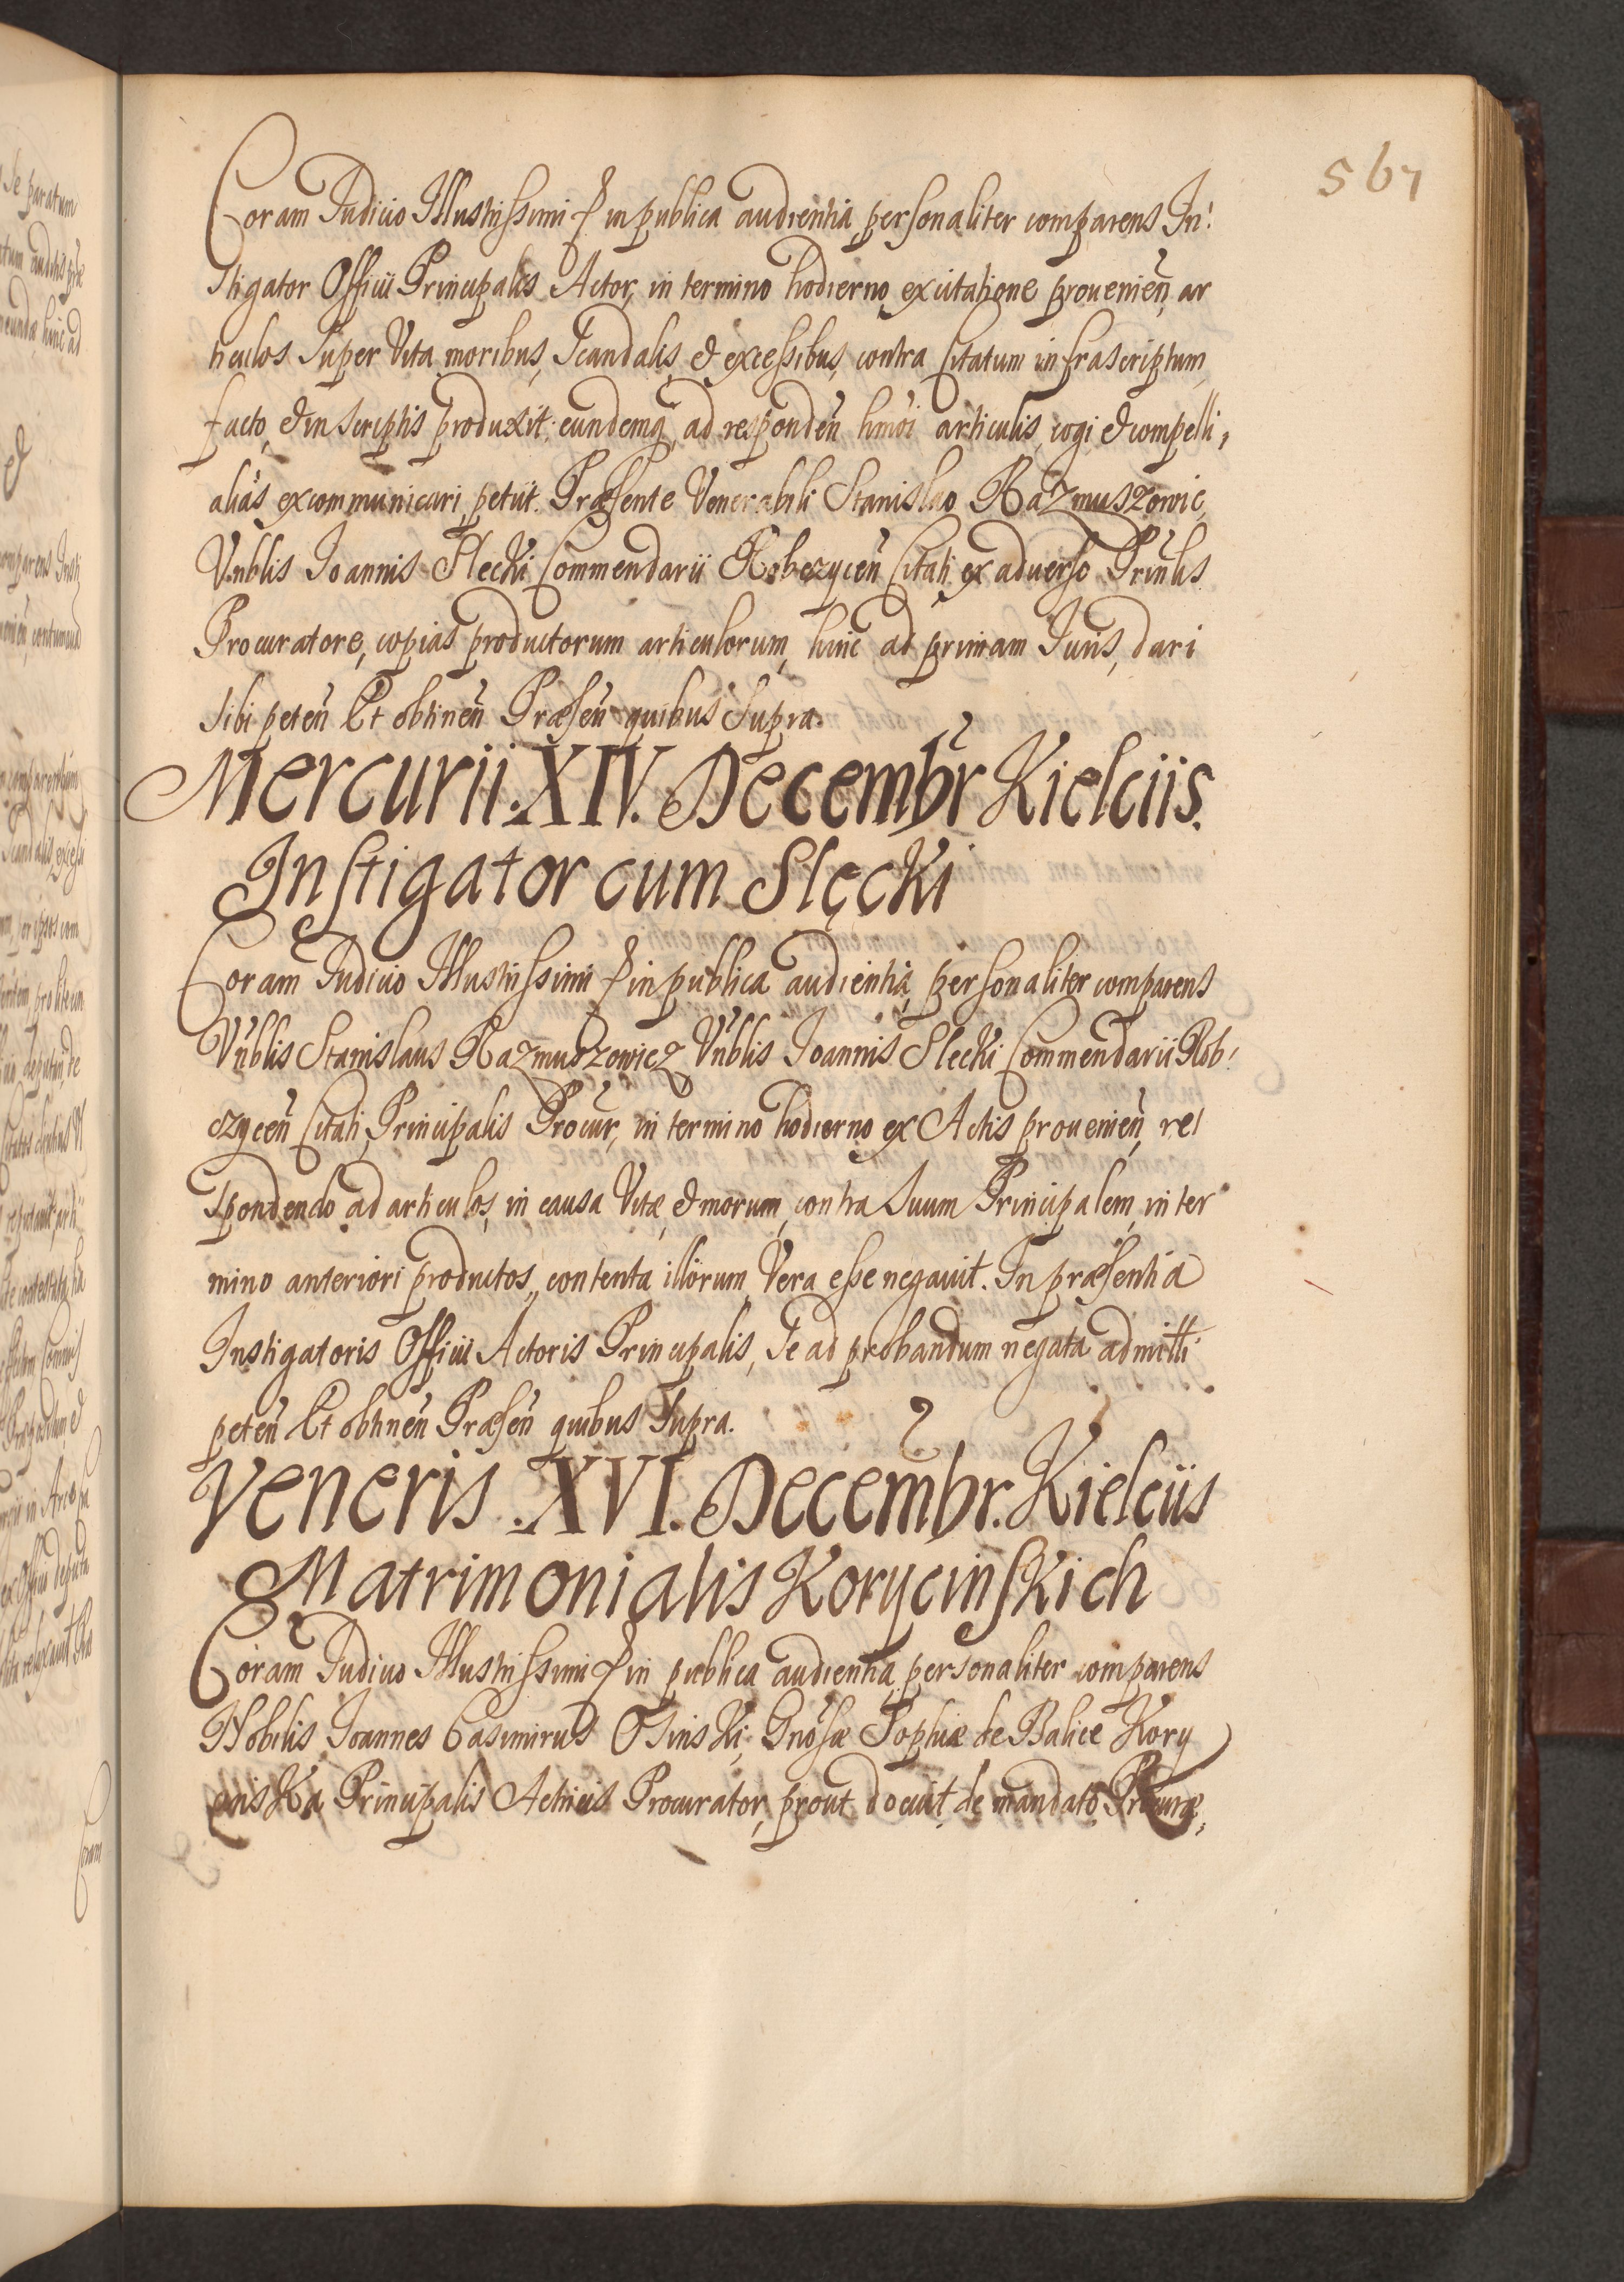 567
Coram Iudicio Illustrissimi & in publica audientia, personaliter comparens In-
stigator Officii Principalis Actor, in termino hodierno, ex citatione provenień, ar
ticulos super Vita, moribus, Scandalis, & excessibus, contra Citatum infrascriptum,
facto, & in scriptis produxit; eundemq, ad respondeń hmoi articulis, cogi & compelli,
alias excommunicari, petiit. Præsente Venerabili Stanislao Razmuszowic,
Vnblis Joannis Slecki Commendarii Robczyceń Citati ex adverso Prinlis
Procuratore, copias productorum articulorum, hinc ad primam Iuris, dari
sibi peteń Et obtineń Præseń quibus Supra.
Mercurii. XIV. Decembr Kielciis.
Instigator cum Slęcki
Coram Iudicio Illustrissimi & in publica audientia, personaliter comparens
Vnblis Stanislaus Razmuszowicz Vnblis Joannis Slecki Commendarii Rob-
czyceń Citati Principalis Procur, in termino hodierno ex Actis provenień, re
spondendo ad articulos, in causa Vitæ, & morum, contra Suum Principalem, in ter
mino anteriori productos, contenta illorum, Vera esse negavit. In præsentia
Instigatoris Officii Actoris Principalis, Se ad probandum negata admitti
peteń Et obtineń Præseń quibus Supra.
Veneris. XVI. Decembr. Kielciis
Matrimonialis Korycinskich
Coram Iudicio Illustrissimi & in publica audientia, personaliter comparens
Nobilis Joannes Casimirus Osinski, Gnosæ Sophiæ de Balice Kory
cinska Principalis Actricis Procurator, prout docuit de mandato Procuræ,